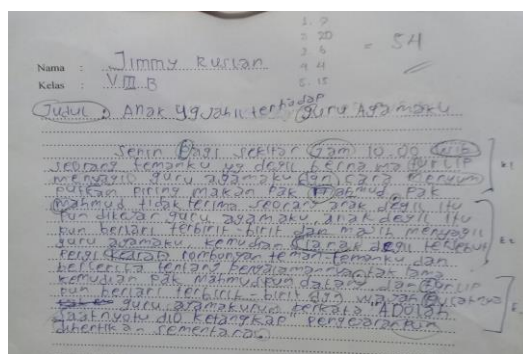 1. 7
2. 20
3. 4
4. 4
5. 15
= 54
Nama : Jimmy Ruslan
Kelas : VIII B
Judul : Anak yg jahil terhadap guru Agamaku
Senin Pagi sekitar jam 10.00
seorang temanku yg degil
menyagil guru agamaku dgn cara menyum
putkan piring makan Pak Mahmud. Pak
Mahmud tidak terima seorang anak degil itu
pun dikejar guru agamaku, anak degil itu
pun berlari terbirit-birit dan masih menyagil
guru agamaku, kemudian anak degil tersebut
pergi rombongan teman temanku dan
bercerita tentang pengalamannya tak lama
kemudian Pak Mahmud pun datang dan
pun berlari terbirit-birit dgn wajah
guru agamaku berkata "ADOlah
saatnya dio ketangkap pengejaran pun
dihentikan sementara.